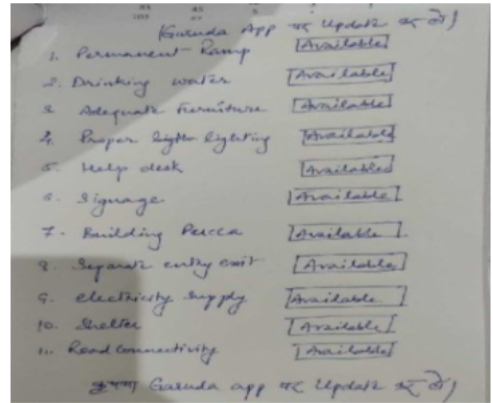 (Garuda App पर Update कर दो)
1. Permanent Ramp [Available]
2. Drinking water [Available]
3. Adequate Furniture [Available]
4. Proper lighting [Available]
5. Help desk [Available]
6. Signage [Available]
7. Building Pucca [Available]
8. Separate entry exit [Available]
9. electricity supply [Available]
10. Shelter [Available]
11. Road connectivity [Available]
कृपया Garuda app पर Update कर दो)